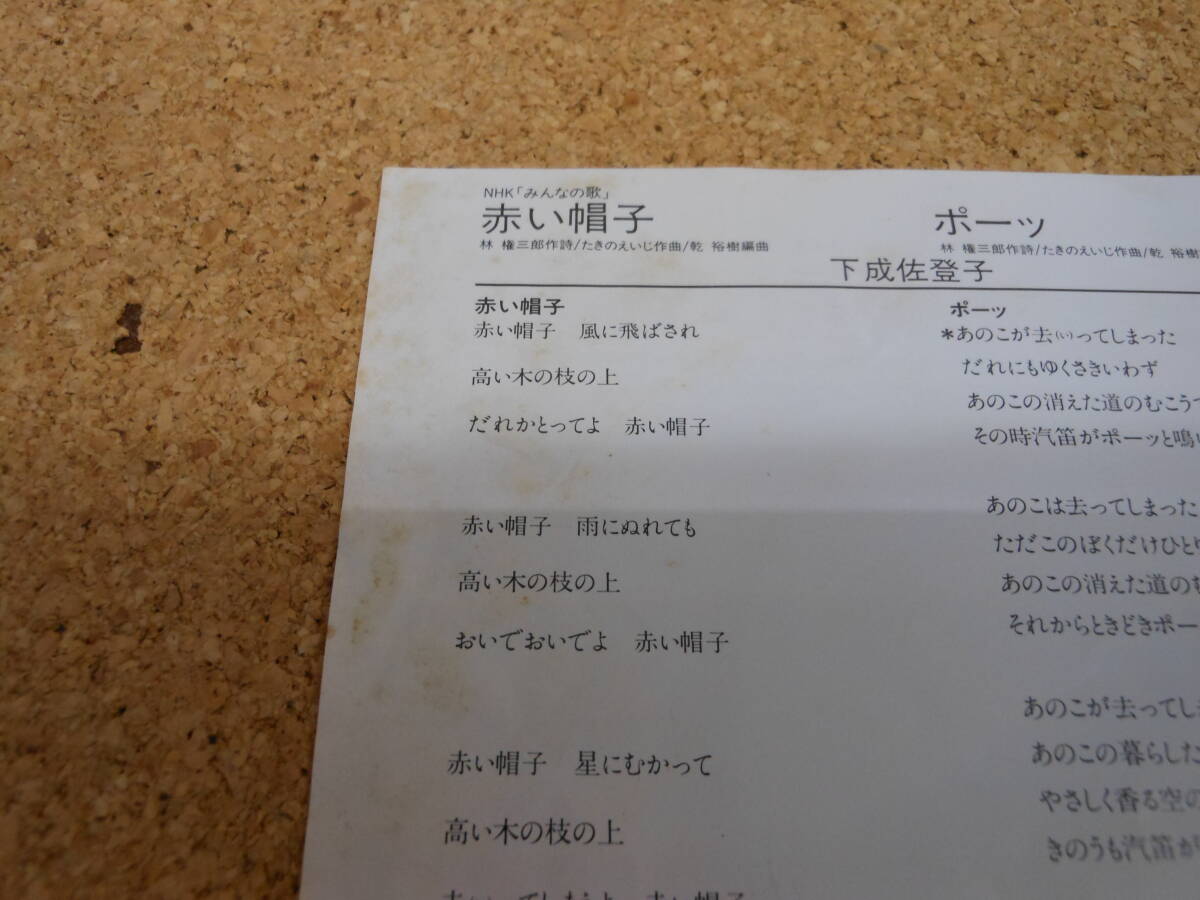 NHK「みんなの歌」
赤い帽子
林 権三郎作詩/たきのえいじ作曲/乾 裕樹編曲
ポーッ
林 権三郎作詩/たきのえいじ作曲/乾 裕樹
下成佐登子
赤い帽子
赤い帽子 風に飛ばされ
高い木の枝の上
だれかとってよ 赤い帽子
赤い帽子 雨にぬれても
高い木の枝の上
おいでおいでよ 赤い帽子
赤い帽子 星にむかって
高い木の枝の上
赤い帽子
ポーッ
*あのこが去(い)ってしまった
だれにもゆくさきいわず
あのこの消えた道のむこうで
その時汽笛がポーッと鳴
あのこは去ってしまった
ただこのぼくだけひと
あのこの消えた道の
それからときどきポー
あのこが去ってし
あのこの暮らした
やさしく香る空の
きのうも汽笛が